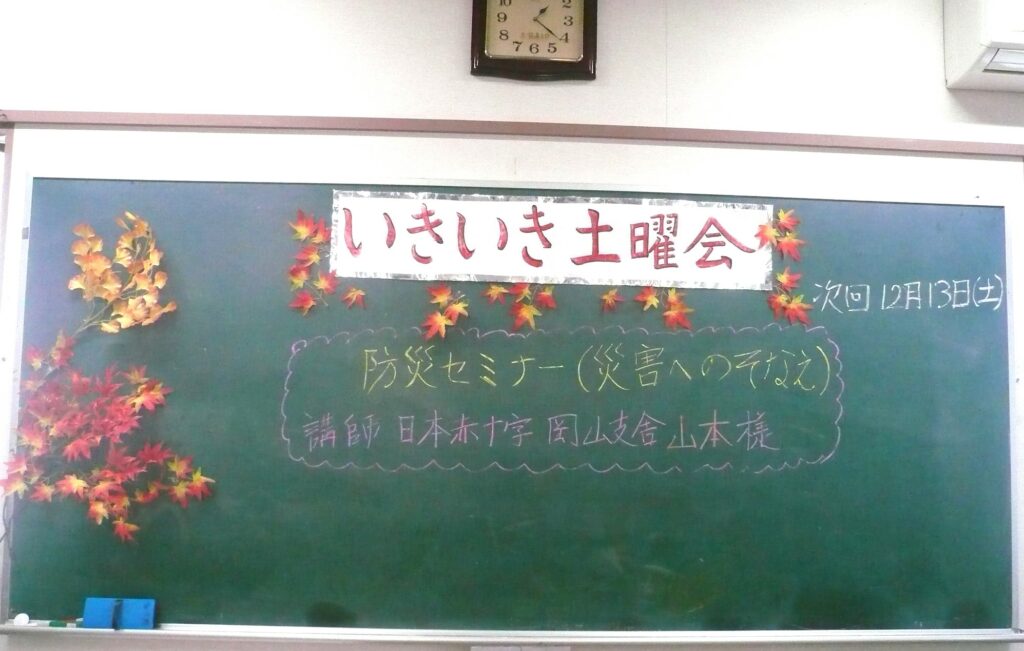 10 2
9 3
8 4
7 6 5
いきいき土曜会
次回 12月13日(土)
防災セミナー(災害へのそなえ)
講師 日本赤十字 岡山支舎 山本様